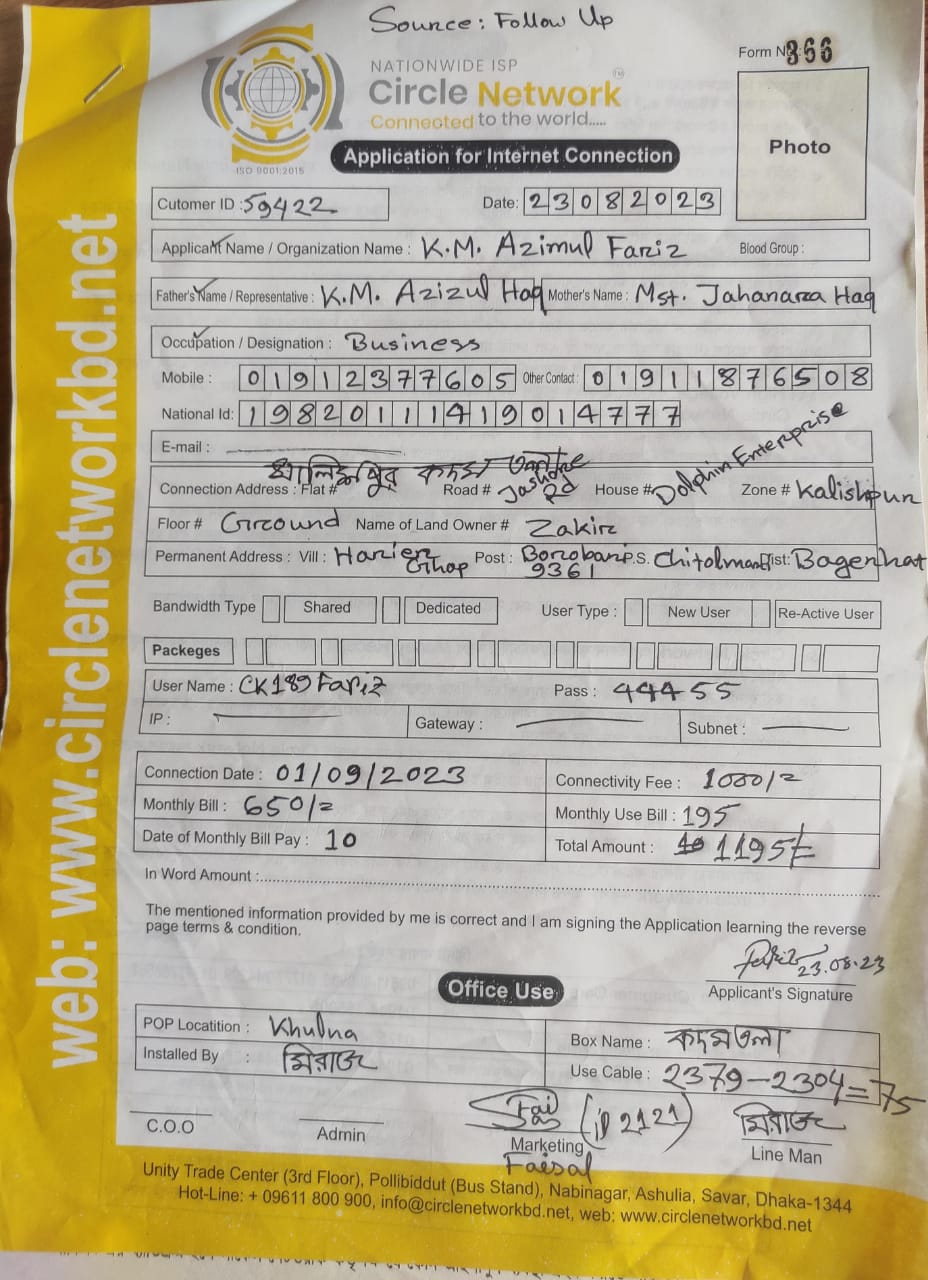 Source: Follow Up
Form No: 366
NATIONWIDE ISP
Circle Network TM
Connected to the world.....
ISO 9001:2015
Application for Internet Connection
Photo
Cutomer ID : 59422 Date: 23082023
Applicant Name / Organization Name : K.M. Azimul Fariz Blood Group :
Father's Name / Representative : K.M. Azizul Haq Mother's Name : Mst. Jahanara Haq
Occupation / Designation : Business
Mobile : 01912377605 Other Contact : 01911876508
National Id: 19820111419014777
E-mail :
খালিশপুর কদম তলা
Connection Address : Flat # Road # Jashore Rd House # Dolphin Enterprise Zone # Kalishpur
Floor # Ground Name of Land Owner # Zakir
Permanent Address : Vill : Harier Ghop Post : Borobaria 9361 P.S. Chitolmari Dist: Bagerhat
Bandwidth Type Shared Dedicated User Type : New User Re-Active User
Packeges
User Name : CK189Fariz Pass : 44455
IP : Gateway : Subnet :
Connection Date : 01/09/2023 Connectivity Fee : 1000/=
Monthly Bill : 650/= Monthly Use Bill : 195
Date of Monthly Bill Pay : 10 Total Amount : 1195/=
In Word Amount :
The mentioned information provided by me is correct and I am signing the Application learning the reverse
page terms & condition.
Fariz 23.08.23
Applicant's Signature
Office Use
POP Locatition : Khulna Box Name : কদমতলা
Installed By : মিরাজ Use Cable : 2379-2304=75
(iD 2121) মিরাজ
C.O.O Admin Marketing Line Man
Faisal
Unity Trade Center (3rd Floor), Pollibiddut (Bus Stand), Nabinagar, Ashulia, Savar, Dhaka-1344
Hot-Line: + 09611 800 900, info@circlenetworkbd.net, web: www.circlenetworkbd.net
web: www.circlenetworkbd.net